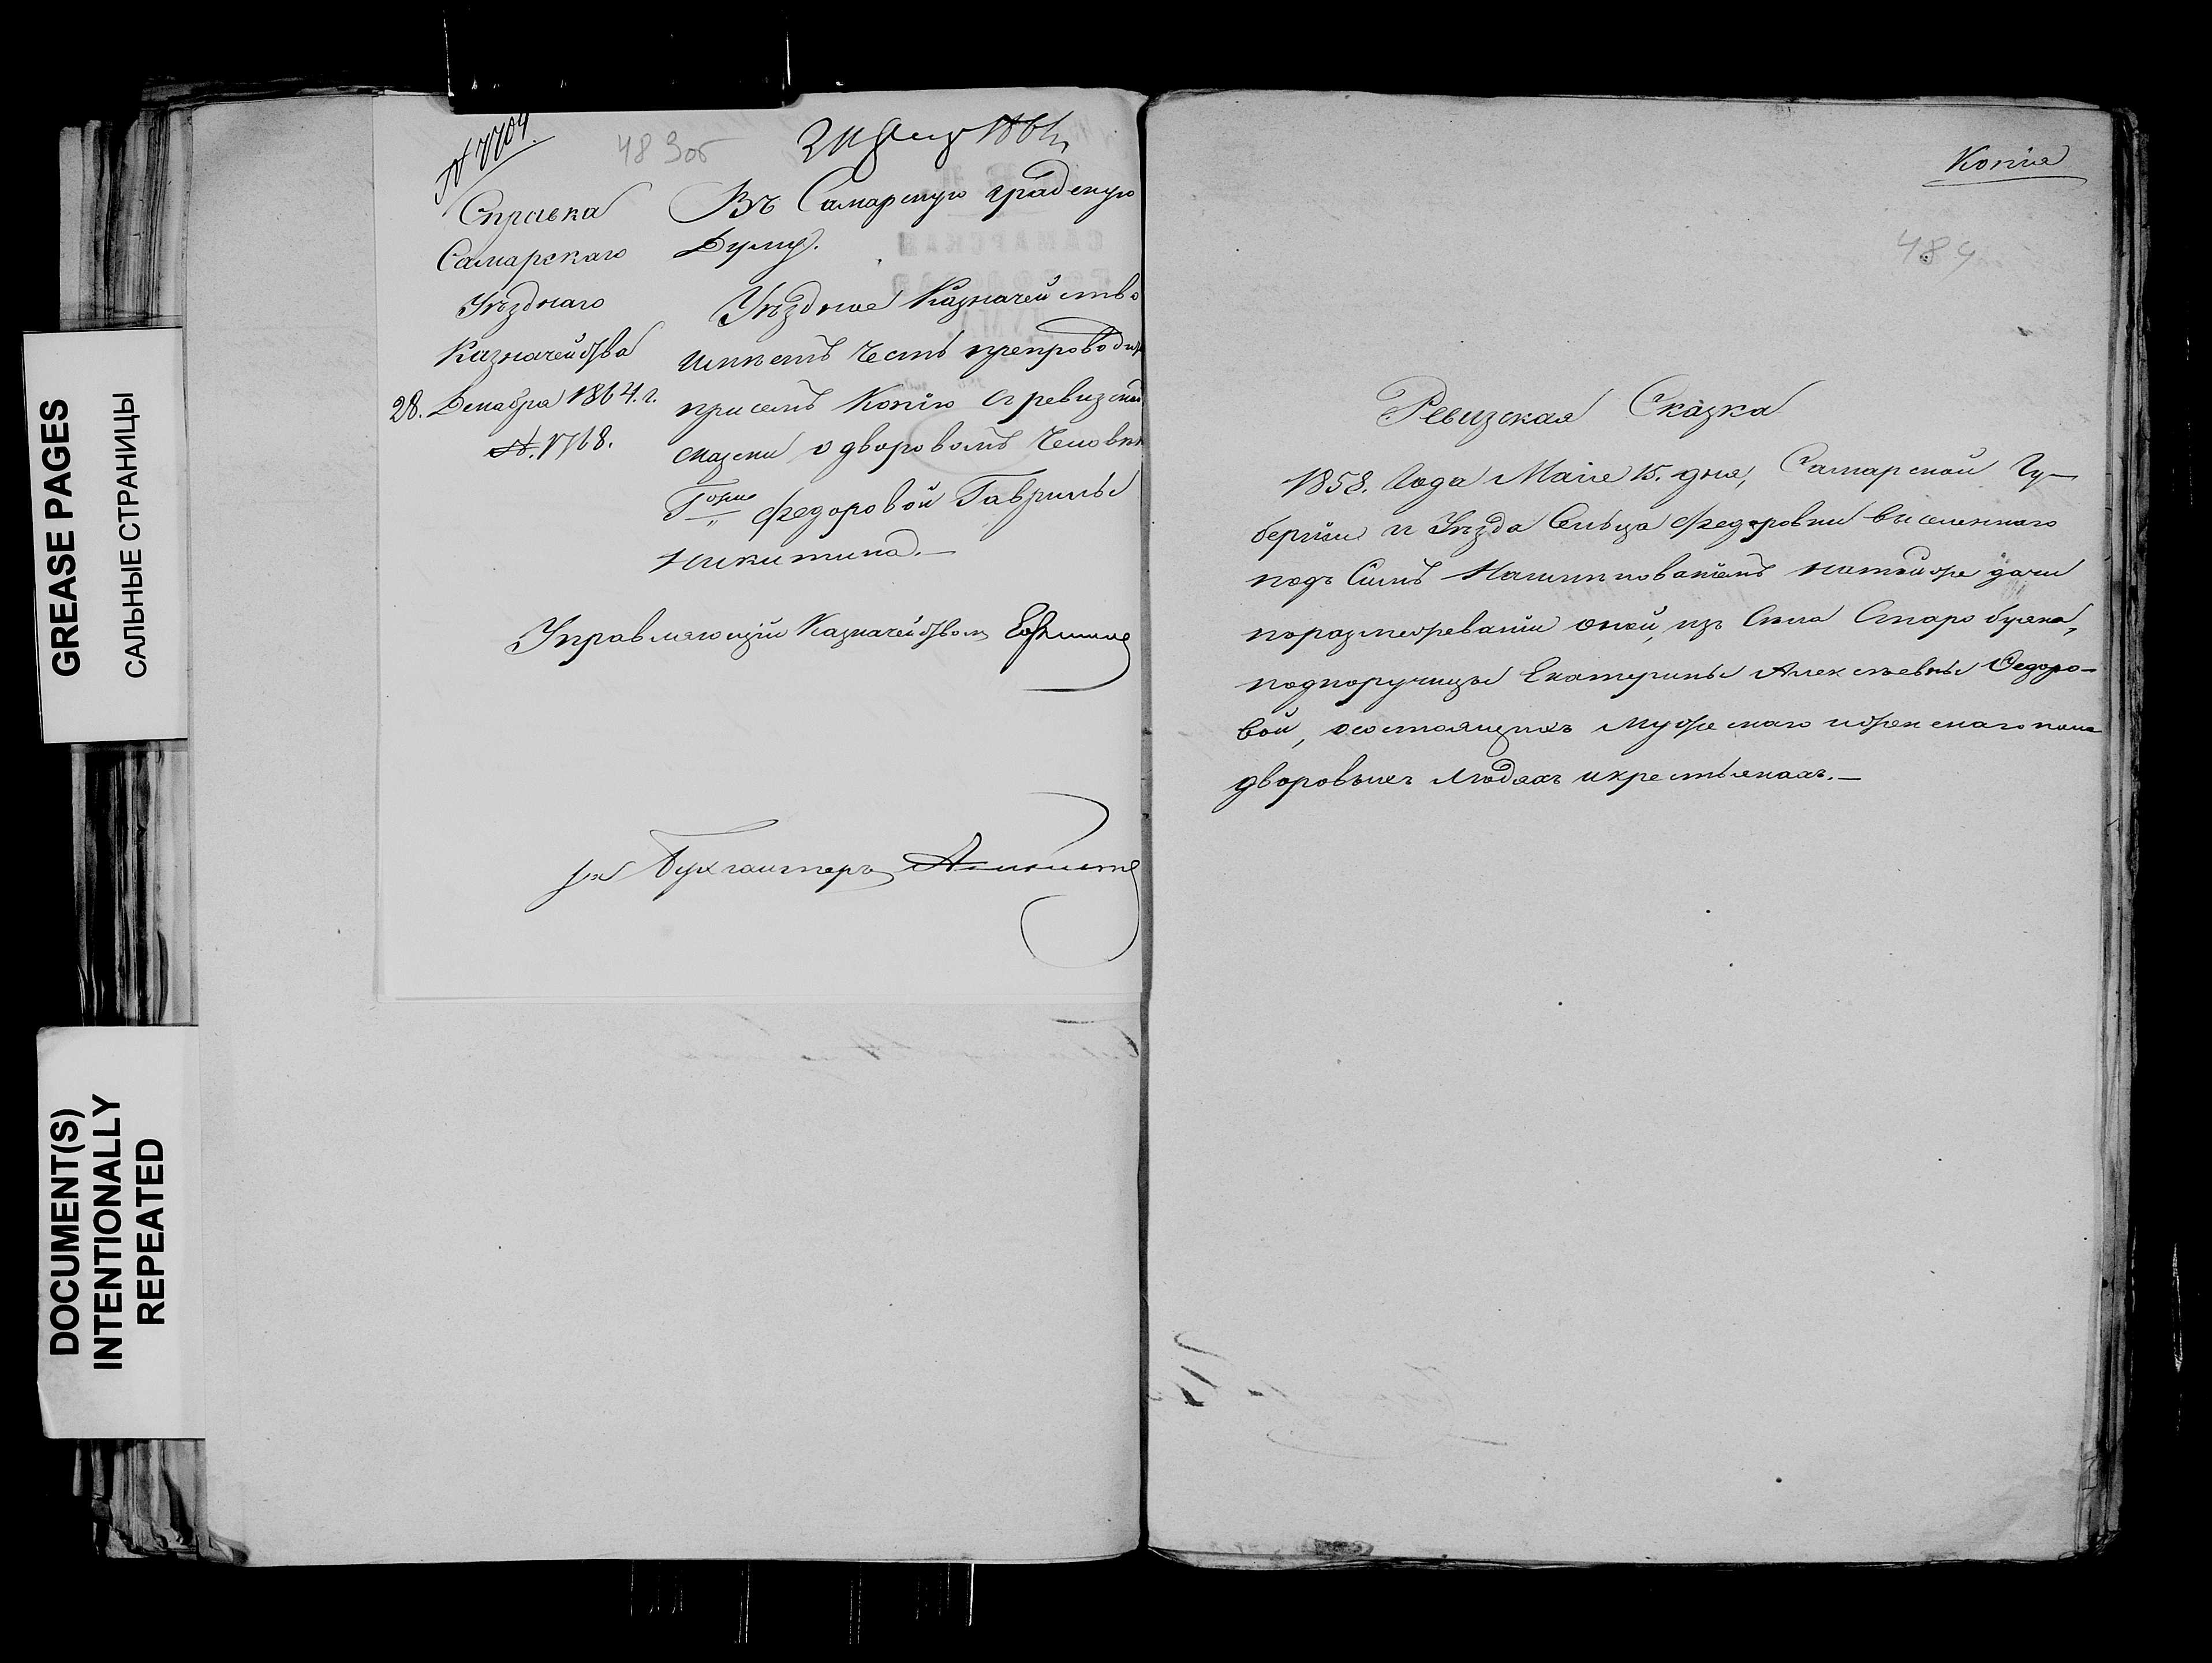 GREASE PAGES
САЛЬНЫЕ СТРАНИЦЫ
DOCUMENT(S)
INTENTIONALLY
REPEATED
483об
Справка
Самарскаго
Уѣзднаго
Казначейства
28. Декабря 1864. г.
№. 1768.
Въ Самарскую градскую
Думу.
Уѣздное Казначейство
имѣетъ честь препроводить
при семъ Копію съ ревизской
сказки о дворовомъ Человѣкѣ
Гжи Федоровой Гаврилы
Никитина.—
Управляющій Казначействомъ
Бухгалтеръ
Копія
484
Ревизская Сказка
1858. Года Маія 15. дня, Самарской Гу-
берніи и Уѣзда Сельца Федоровки выселеннаго
подъ Симъ на
дачи
по размежеваніи оной, изъ Села Старо буяна,
подпоручицы Екатерины Алексѣевны Федоро-
вой, о состоящихъ мужескаго и женскаго пола
дворовыхъ людяхъ и крестьянахъ.—